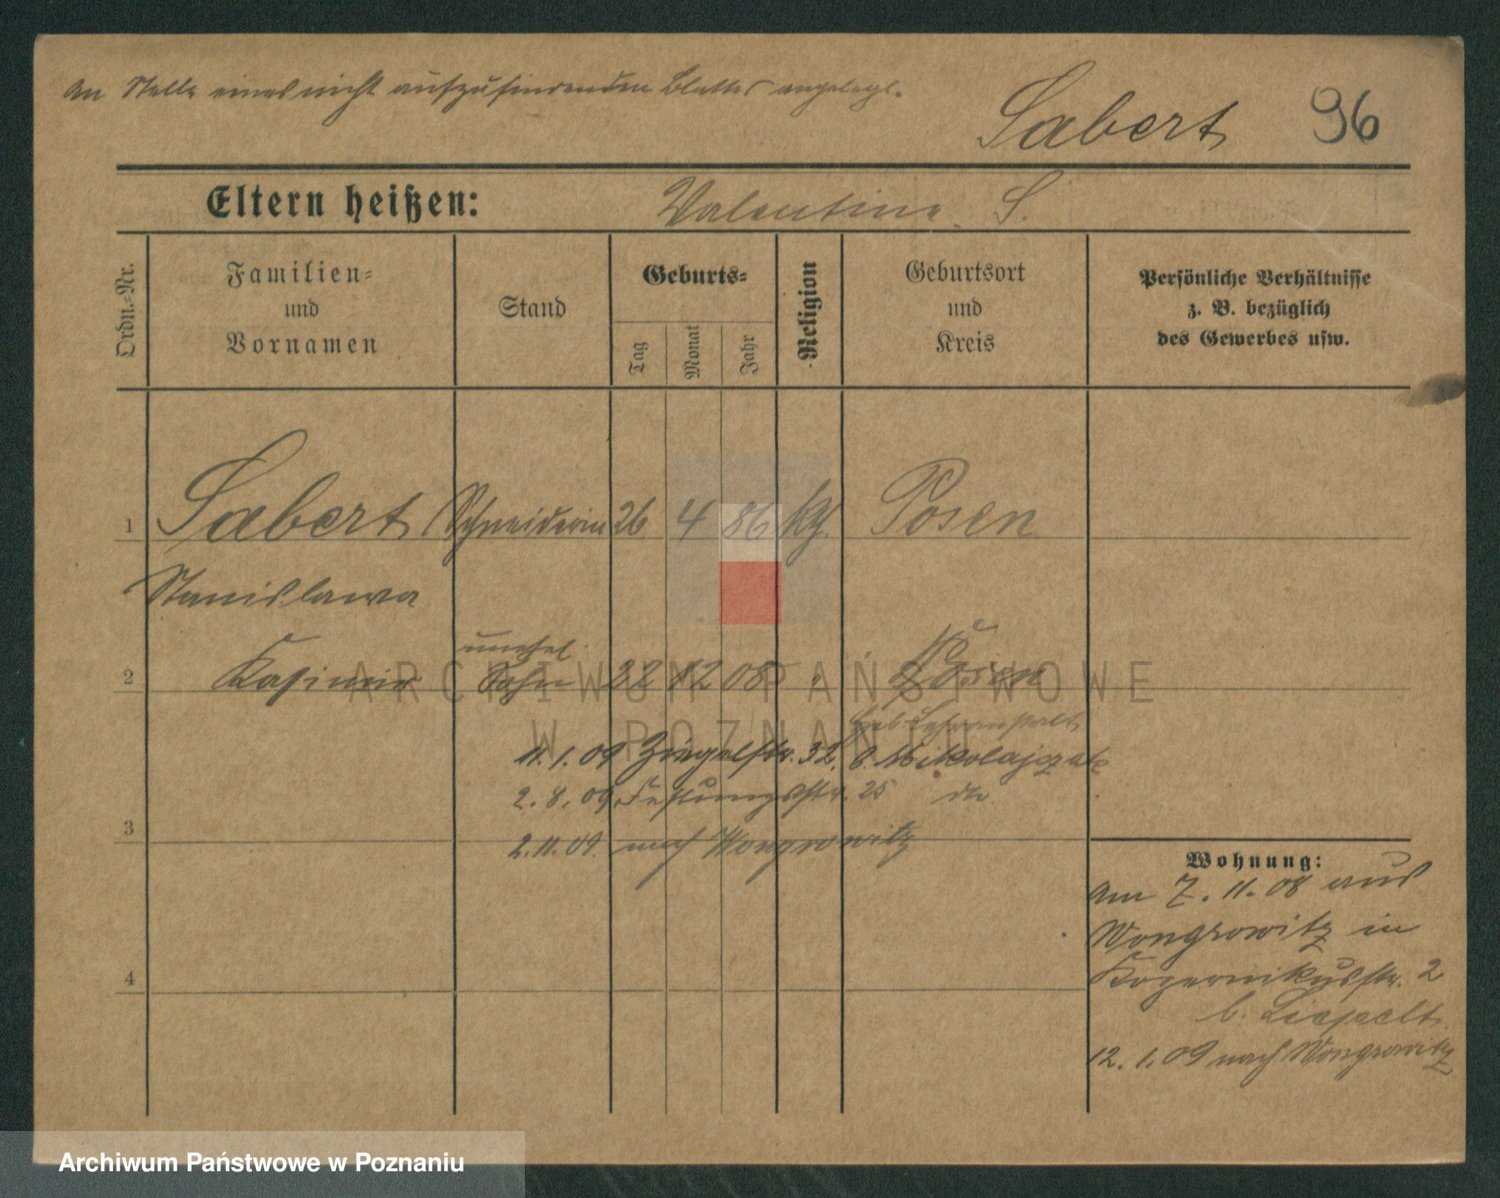 An Stelle eines nicht aufzufindenden Blattes angelegt.
Sabert 96
Eltern heißen: Valentine S.
Ordn.-Nr.
Familien-
und
Vornamen
Stand
Geburts-
Tag
Monat
Jahr
Religion
Geburtsort
und
Kreis
Persönliche Verhältnisse
z. B. bezüglich
des Gewerbes usw.
1 Sabert Schneiderin 26 4 86 kth. Posen
Stanislawa
unehel.
2 Kasimir Sohn 22 12 08 " Posen
geb. Hebeanstalt
11.1.09 Ziegelstr. 32, b. Mikolajczak
2.8.09 Festungsstr. 25 do
3
2.11.09. nach Wongrowitz
Wohnung:
Am 7.11.08 aus
Wongrowitz in
4
Kopernikusstr. 2
b.
12.1.09 nach Wongrowitz
ARCHIWUM PAŃSTWOWE
W POZNANIU
Archiwum Państwowe w Poznaniu